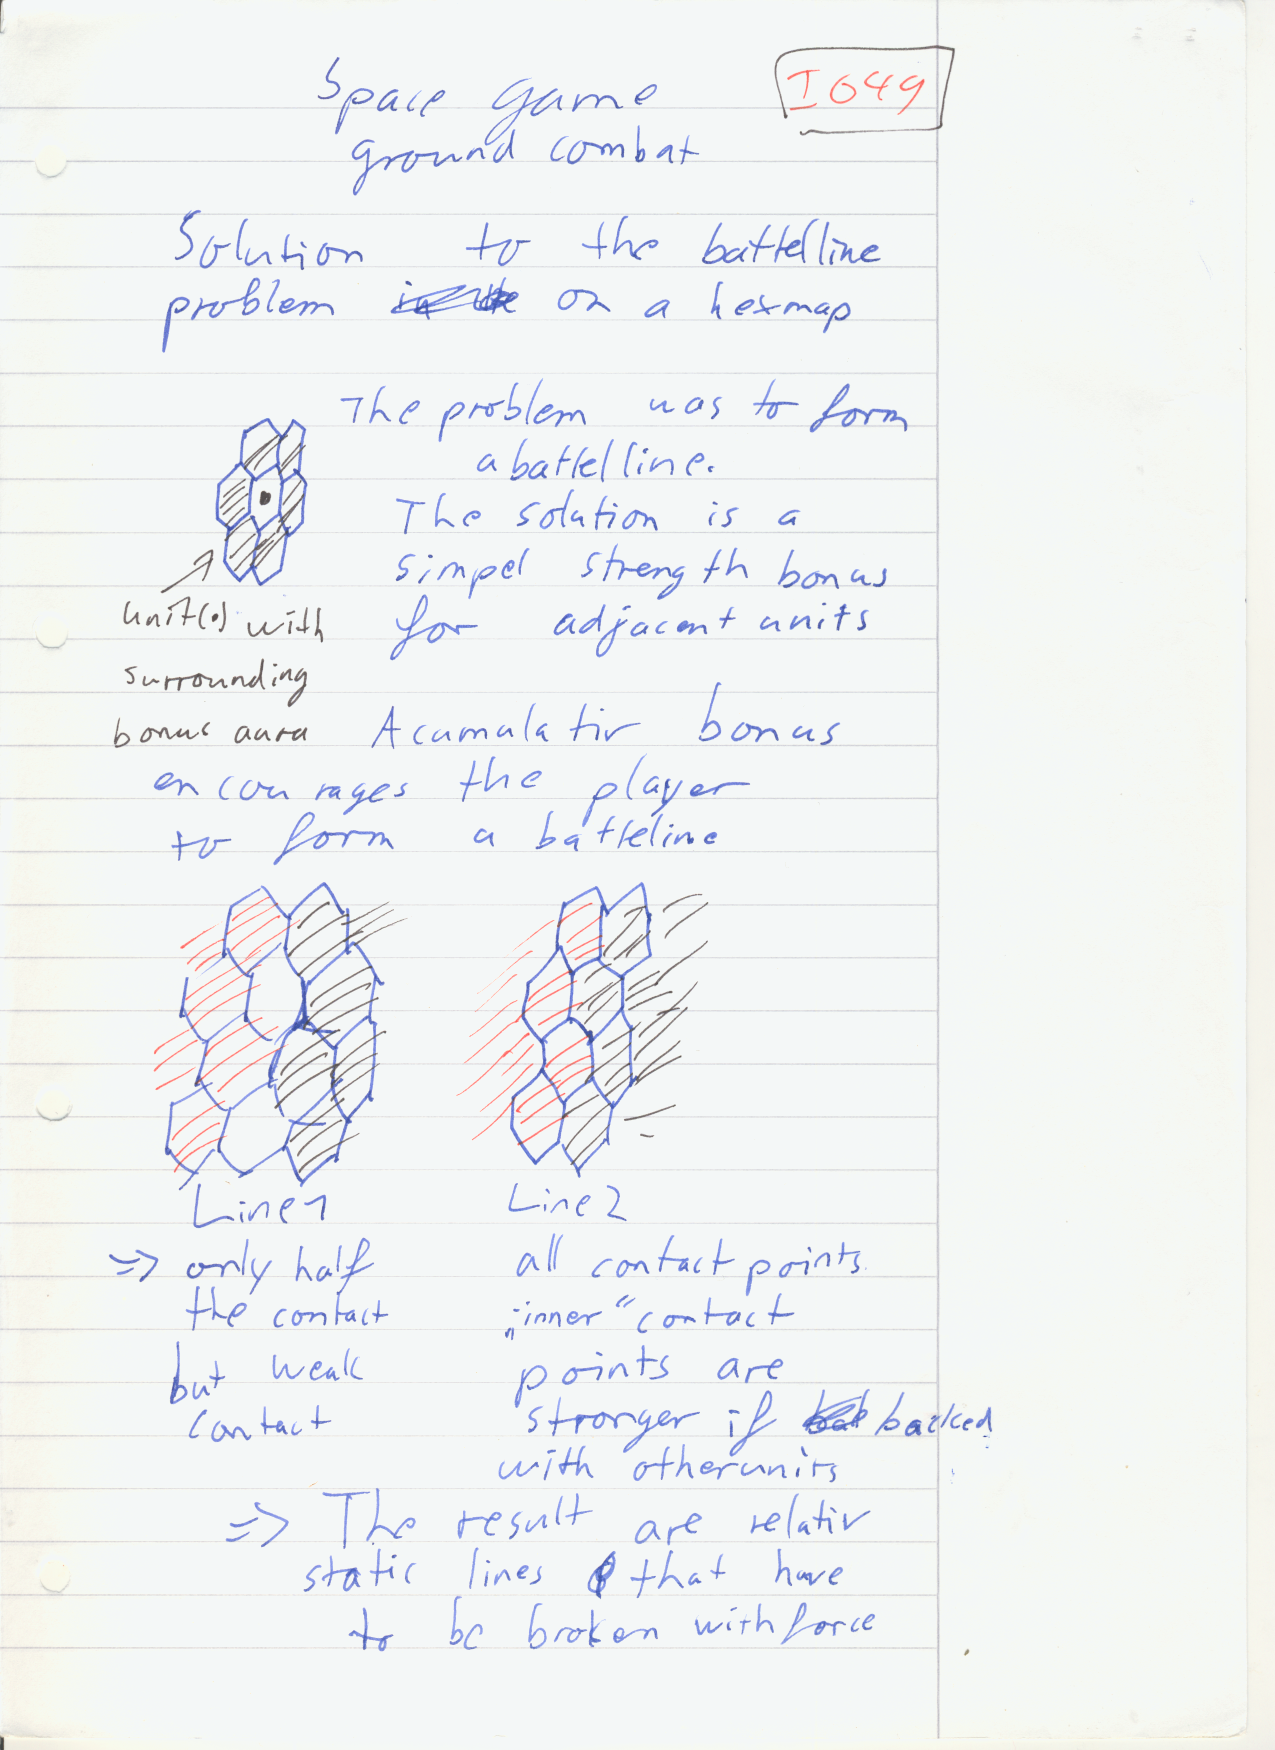 Space game
I049
ground combat
Solution to the battelline
problem on a hexmap
The problem was to form
a battelline.
The solution is a
simpel strength bonus
for adjacent units
unit(•) with
surrounding
bonus aura
Acumulativ bonus
encourages the player
to form a battleline
Line 1
=> only half
the contact
but weak
contact
Line 2
all contact points
„inner“ contact
points are
stronger if backed
with other units
=> The result are relativ
static lines that have
to be broken with force